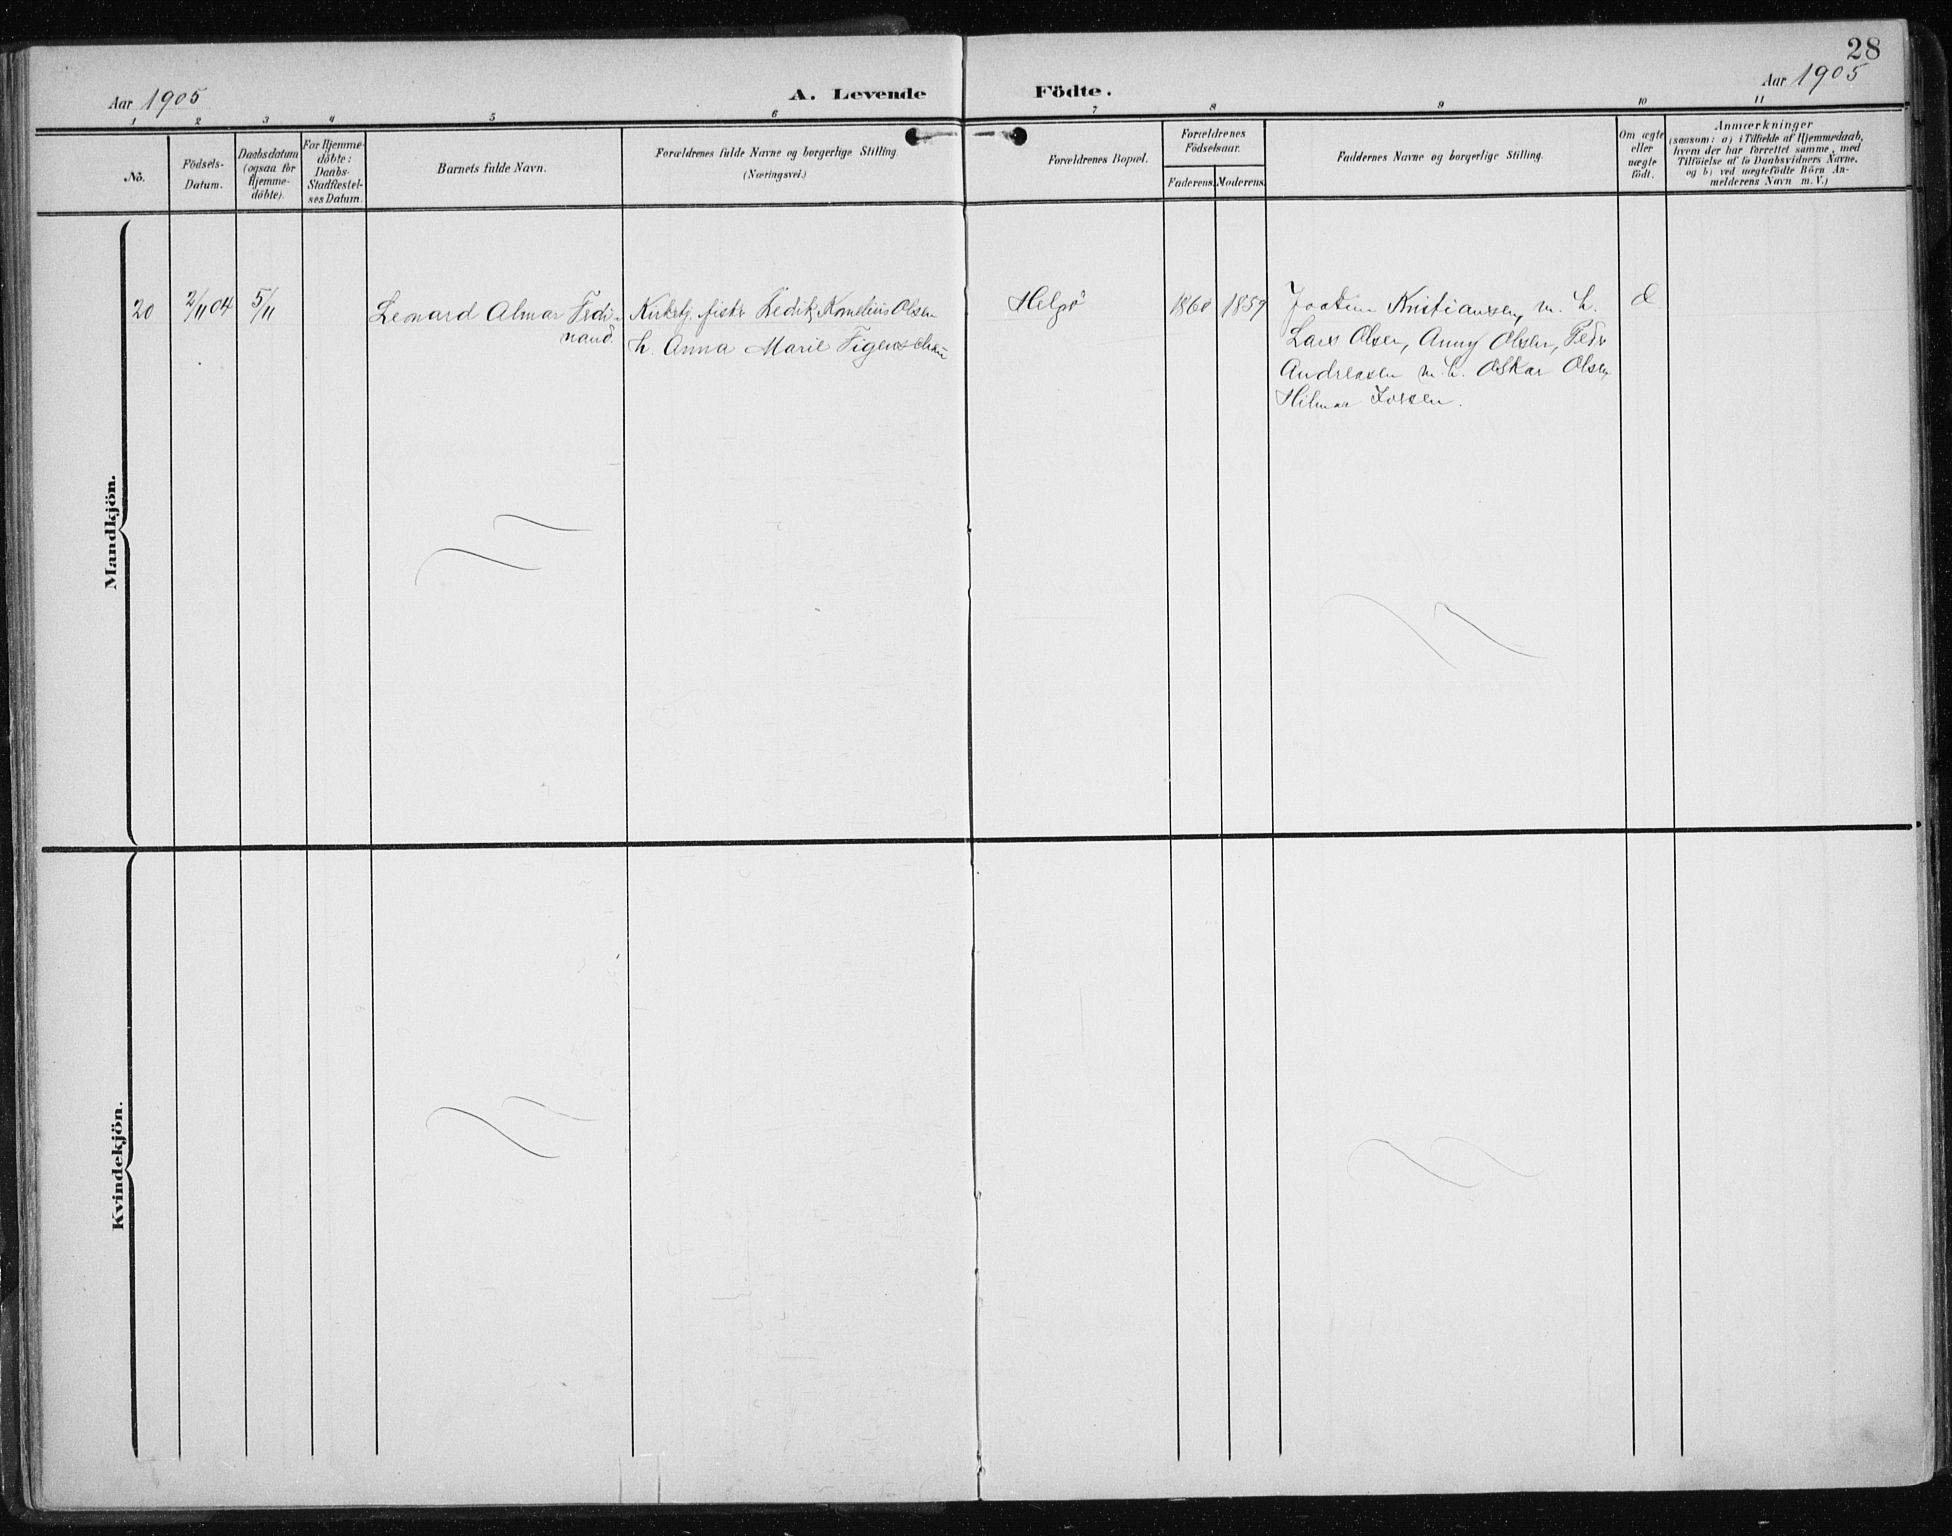 28
Aar 1905
A. Levende Födte.
Aar 1905
1 2 3 4 5 6 7 8 9 10 11
No.
Födsels-
Datum.
Daabsdatum
(ogsaa for
Hjemme-
döbte).
For Hjemme-
döbte:
Daabs-
Stadfæstel-
ses Datum.
Barnets fulde Navn.
Forældrenes fulde Navne og borgerlige Stilling.
(Næringsvei.)
Forældrenes Bopæl.
Forældrenes
Födselsaar.
Faderens. Moderens.
Faddernes Navne og borgerlige Stilling.
Om ægte
eller
uægte
födt.
Anmærkninger
(saasom: a) i Tilfælde af Hjemmedaab,
hvem der har forrettet samme, med
Tilföielse af to Daabsvidners Navne.
og b) ved uægtefödte Börn An-
melderens Navn m. V.)
Mandkjön.
20
2/11 04
5/11
Leonard Almar Ferdi-
nand.
fisker Kornelius Olsen
h. Anna Marie Figenschau
Helgö
1860
1859
Kristiansen, m. h.
Lars Olsen, Anny Olsen, Peder
Andreasen m. h. Oskar Olsen
Hilmar
Kvindekjön.